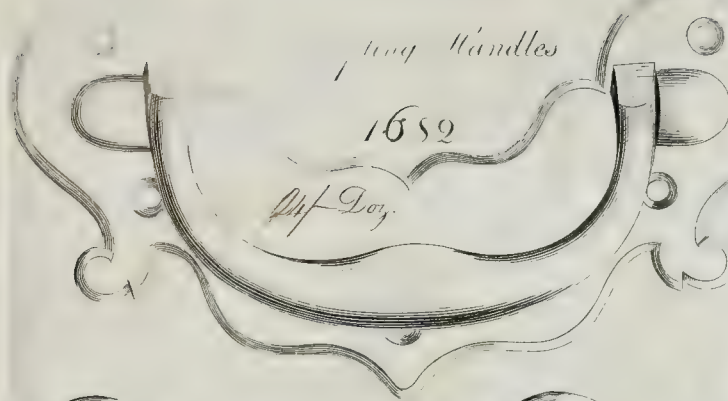 Handles
1652
24/- Doz.